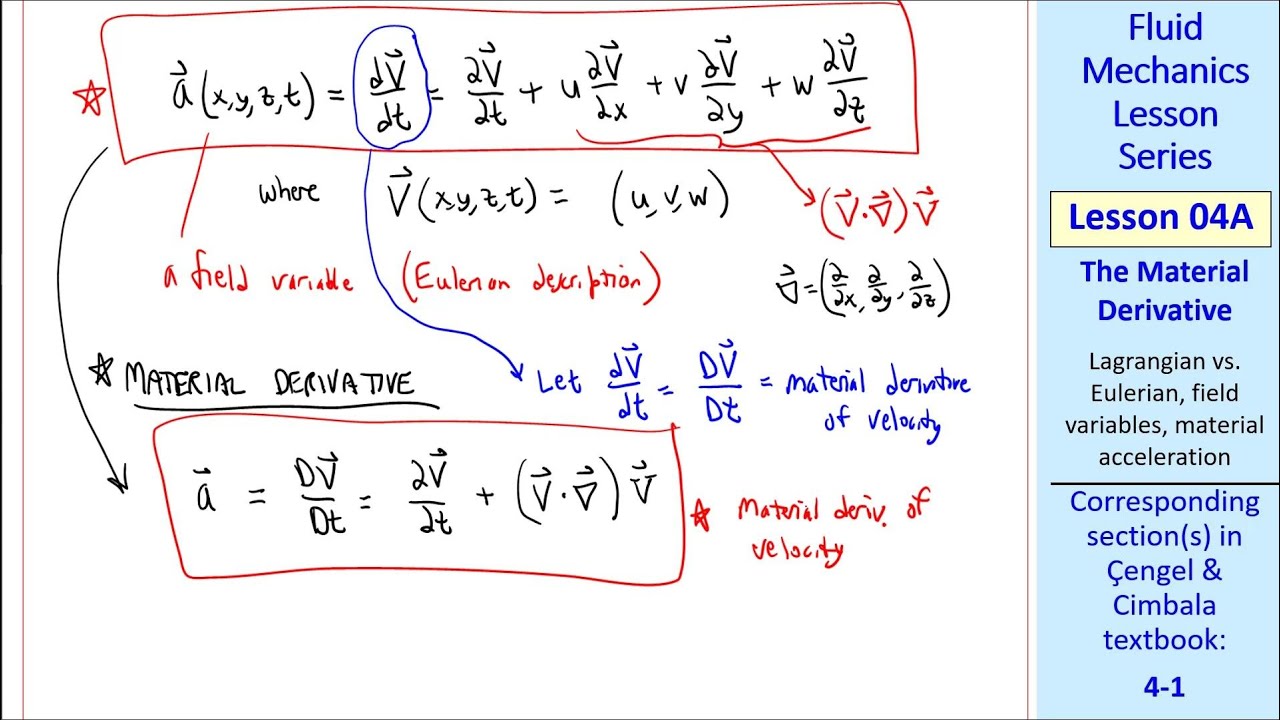 ☆ a⃗(x,y,z,t) = dV⃗/dt = ∂V⃗/∂t + u ∂V⃗/∂x + v ∂V⃗/∂y + w ∂V⃗/∂z
where V⃗(x,y,z,t) = (u,v,w)
(V⃗·∇⃗)V⃗
a field variable (Eulerian description)
∇⃗ = (∂/∂x, ∂/∂y, ∂/∂z)
☆ MATERIAL DERIVATIVE
Let dV⃗/dt = DV⃗/Dt = material derivative
of velocity
a⃗ = DV⃗/Dt = ∂V⃗/∂t + (V⃗·∇⃗)V⃗
☆ Material deriv. of
velocity
Fluid
Mechanics
Lesson
Series
Lesson 04A
The Material
Derivative
Lagrangian vs.
Eulerian, field
variables, material
acceleration
Corresponding
section(s) in
Çengel &
Cimbala
textbook:
4-1